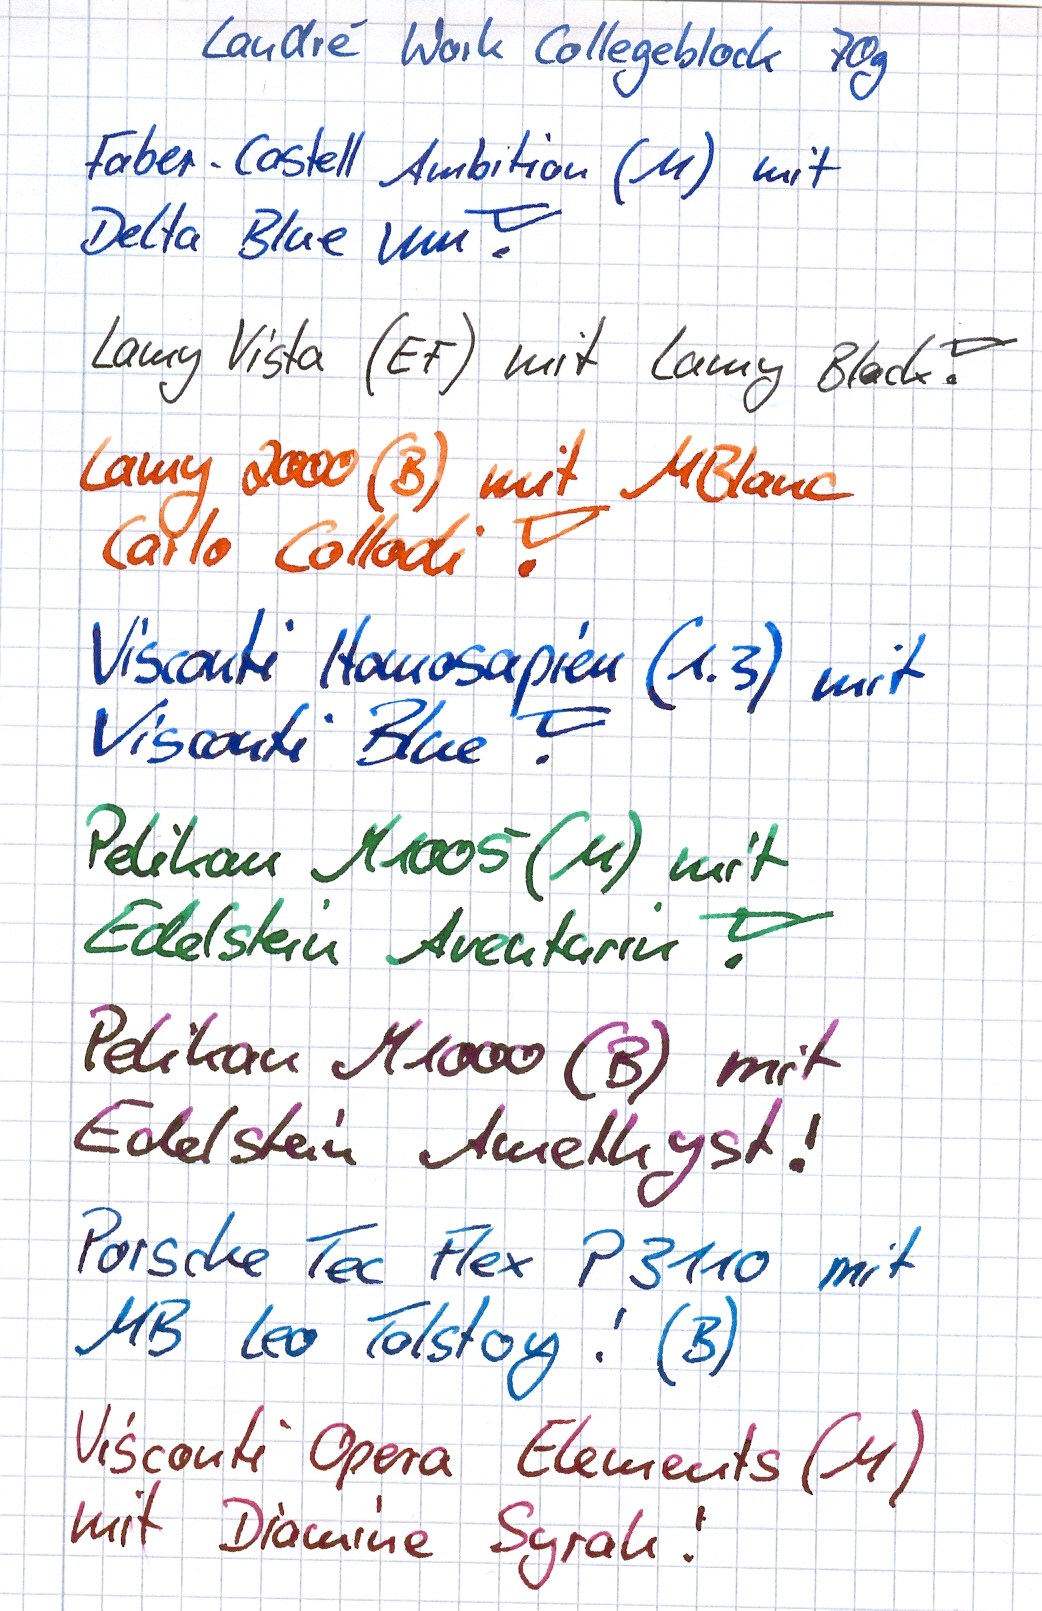 Landré Work Collegeblock 70g
Faber-Castell Ambition (M) mit
Delta Blue !
Lamy Vista (EF) mit Lamy Black!
Lamy 2000 (B) mit MBlanc
Carlo Collodi!
Visconti Homosapien (1.3) mit
Visconti Blue!
Pelikan M1005 (M) mit
Edelstein Aventurin!
Pelikan M1000 (B) mit
Edelstein Amethyst!
Porsche Tec Flex P3110 mit
MB Leo Tolstoy! (B)
Visconti Opera Elements (M)
mit Diamine Syrah!